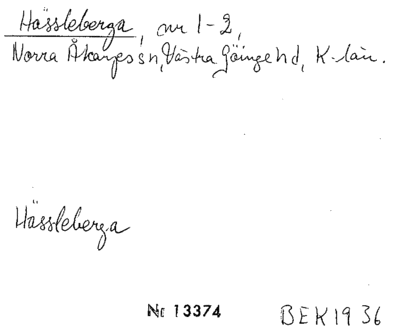 Hässleberga, nr 1-2,
Norra Åkarps sn, Västra Göinge hd, K-län.
Hässleberga
Nr 13374
BEK 19 36